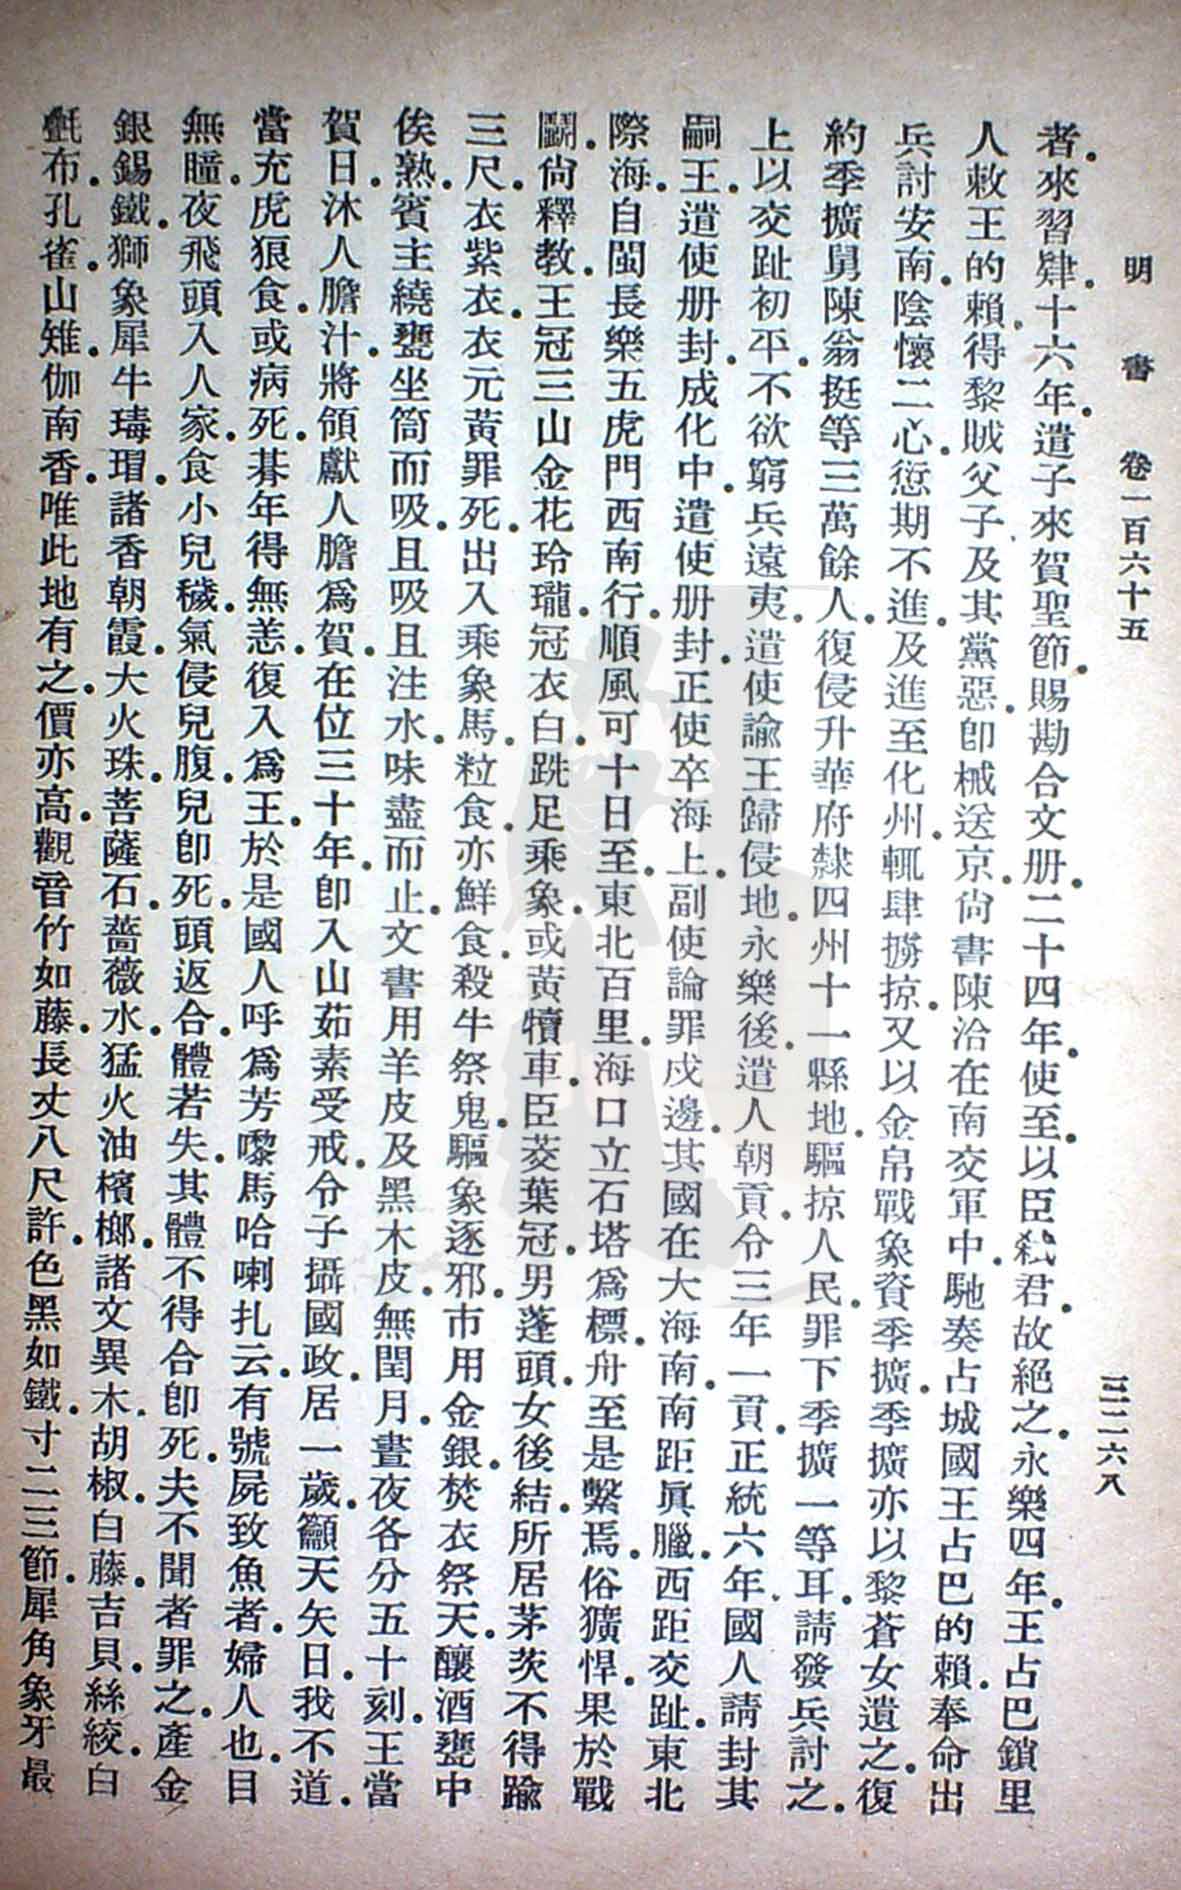 明書　卷一百六十五　三二六八
者。來習肄。十六年。遣子來賀聖節。賜勘合文册。二十四年。使至。以臣弑君。故絕之。永樂四年。王占巴鎖里
人敕王的賴。得黎賊父子及其黨惡。卽械送京。尙書陳洽在南交軍中。馳奏占城國王占巴的賴。奉命出
兵討安南。陰懷二心。愆期不進。及進至化州。輒肆擄掠。又以金帛戰象資季擴。季擴亦以黎蒼女遺之。復
約季擴舅陳翁挺等三萬餘人。復侵升華府隸四州十一縣地。驅掠人民。罪下季擴一等耳。請發兵討之。
上以交趾初平。不欲窮兵遠夷。遣使諭王歸侵地。永樂後。遣人朝貢。令三年一貢。正統六年。國人請封其
嗣王。遣使册封。成化中。遣使册封。正使卒海上。副使論罪戍邊。其國在大海南。南距眞臘。西距交趾。東北
際海。自閩長樂五虎門西南行。順風可十日至。東北百里。海口立石塔爲標。舟至是繫焉。俗獷悍。果於戰
鬭。尙釋教。王冠三山金花玲瓏。冠衣白。跣足乘象。或黃犢車。臣茭葉冠。男蓬頭。女後結。所居茅茨不得踰
三尺。衣紫衣。衣元黃罪死。出入乘象馬。粒食。亦鮮食。殺牛祭鬼。驅象逐邪。市用金銀。焚衣祭天。釀酒甕中
俟熟。賓主繞甕坐。筒而吸。且吸且注水。味盡而止。文書用羊皮及黑木皮。無閏月。晝夜各分五十刻。王當
賀日。沐人膽汁。將領獻人膽爲賀。在位三十年。卽入山茹素受戒。令子攝國政。居一歲。籲天矢日。我不道。
當充虎狼食。或病死。朞年得無恙。復入爲王。於是國人呼爲芳嚟馬哈喇扎云。有號屍致魚者。婦人也。目
無瞳。夜飛頭入人家。食小兒穢。氣侵兒腹。兒卽死。頭返合體若失。其體不得合卽死。夫不聞者罪之。產金
銀錫鐵。獅象犀牛瑇瑁。諸香朝霞。大火珠。菩薩石。薔薇水。猛火油檳榔。諸文異木。胡椒。白藤。吉貝。絲絞。白
㲲布。孔雀。山雉。伽南香。唯此地有之。價亦高。觀音竹如藤。長丈八尺許。色黑如鐵。寸二三節。犀角象牙最